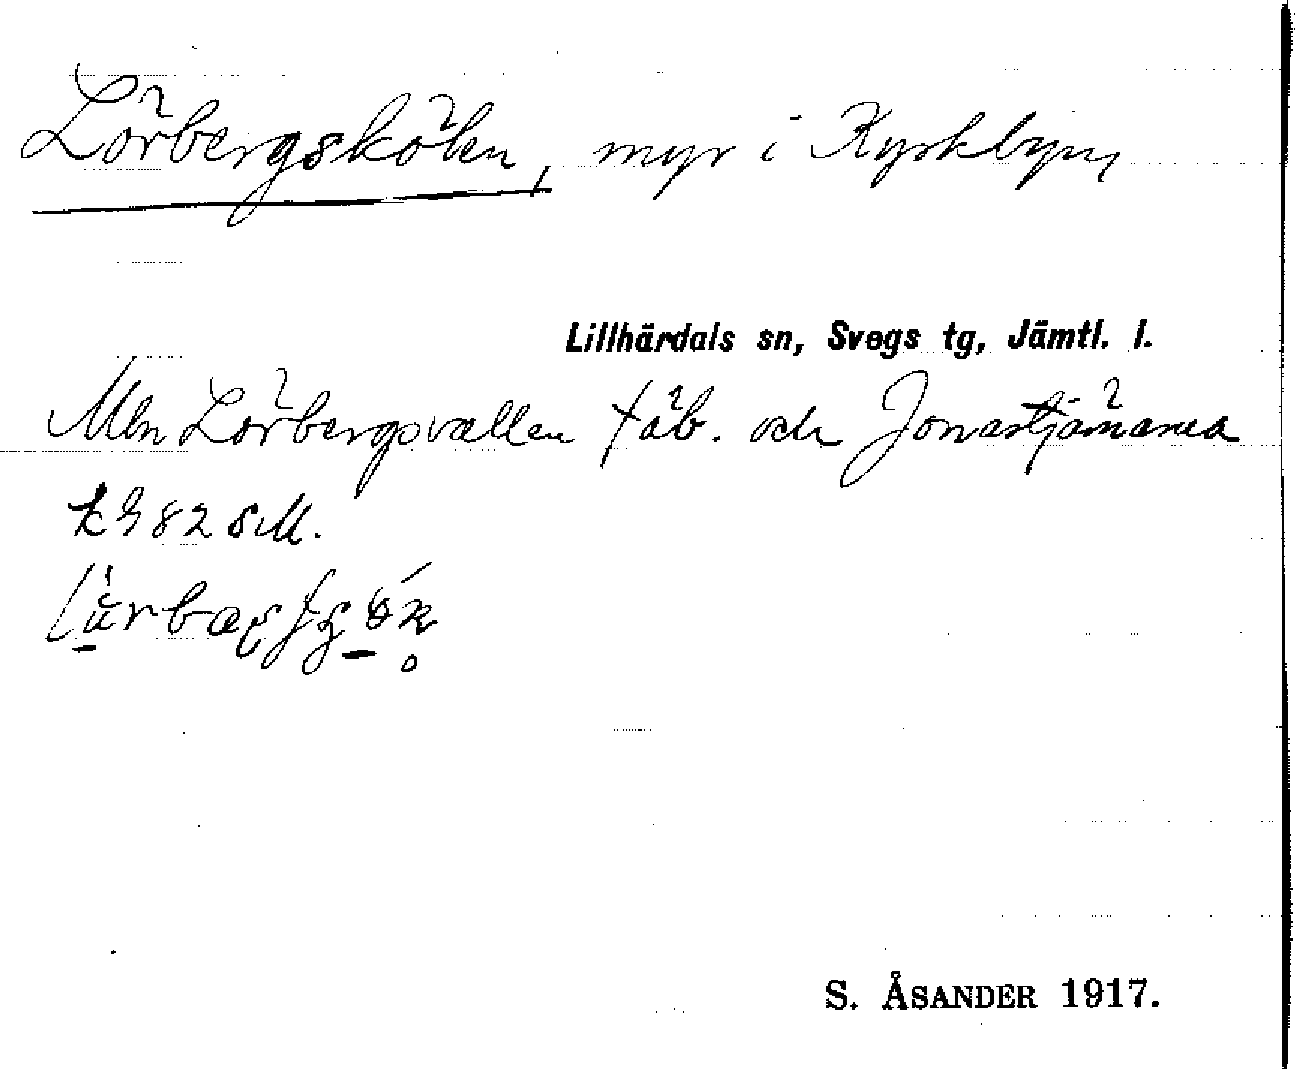 Lörbergskölen, myr i Kyrkbyn,
Lillhärdals sn, Svegs tg, Jämtl. l.
Mln Lörbergsvallen fäb. och Jonastjärnarna
82 SM.
S. ÅSANDER 1917.